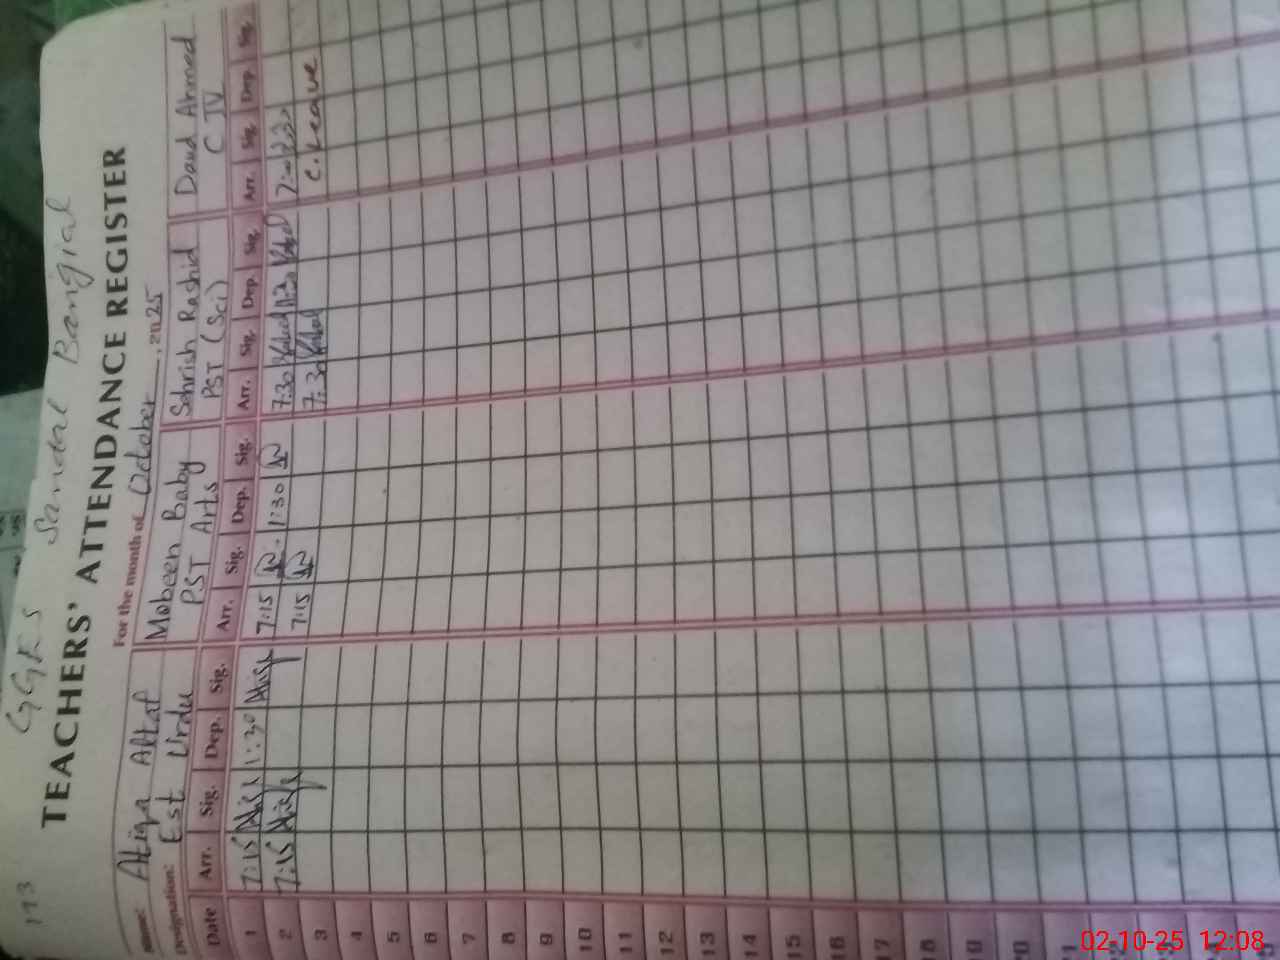 173 GGES Sandal Bangial
TEACHERS' ATTENDANCE REGISTER
For the month of October, 2025
Name: Atiqa Altaf Mobeen Baby Sehrish Rashid Daud Ahmed
Designation: Est Urdu PST Arts PST (Sci) C IV
Date Arr. Sig. Dep. Sig. Arr. Sig. Dep. Sig. Arr. Sig. Dep. Sig. Arr. Sig. Dep. Sig.
1 7:15 1:30 7:15 1:30 7:30 1:30 7:00
2 7:15 7:15 7:30 C. Leave
3
4
5
6
7
8
9
10
11
12
13
14
15
16
17
18
19
20
21
02-10-25 12:08